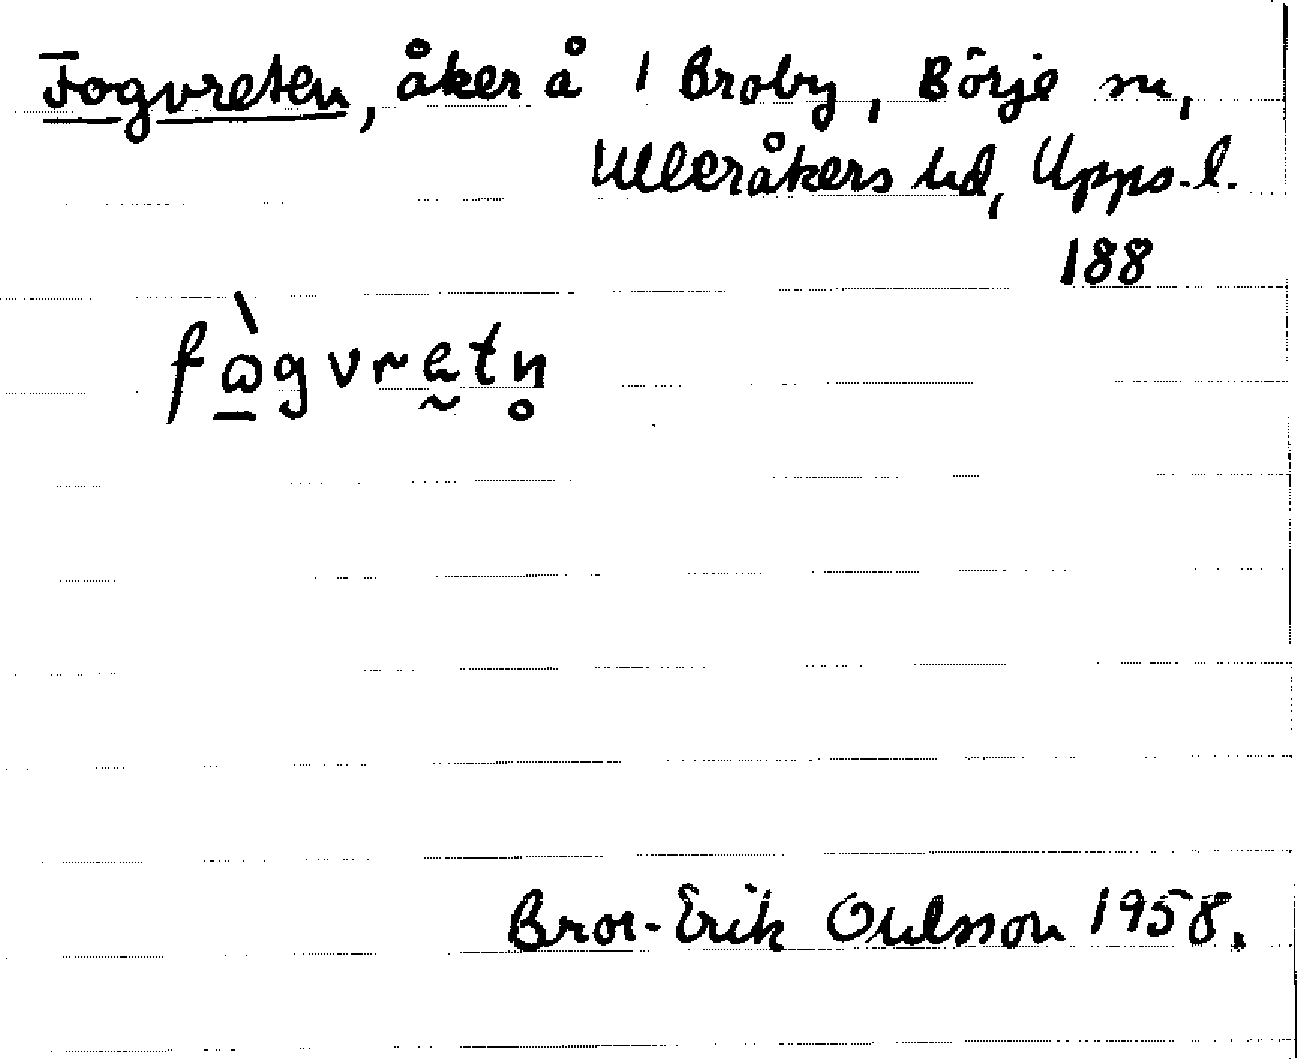 Fogvreten, åker å 1 Broby, Börje sn,
Ulleråkers hd, Upps. l.
188
fὼ̱gvrḛtn̥
Bror-Erik Ohlsson 1958.